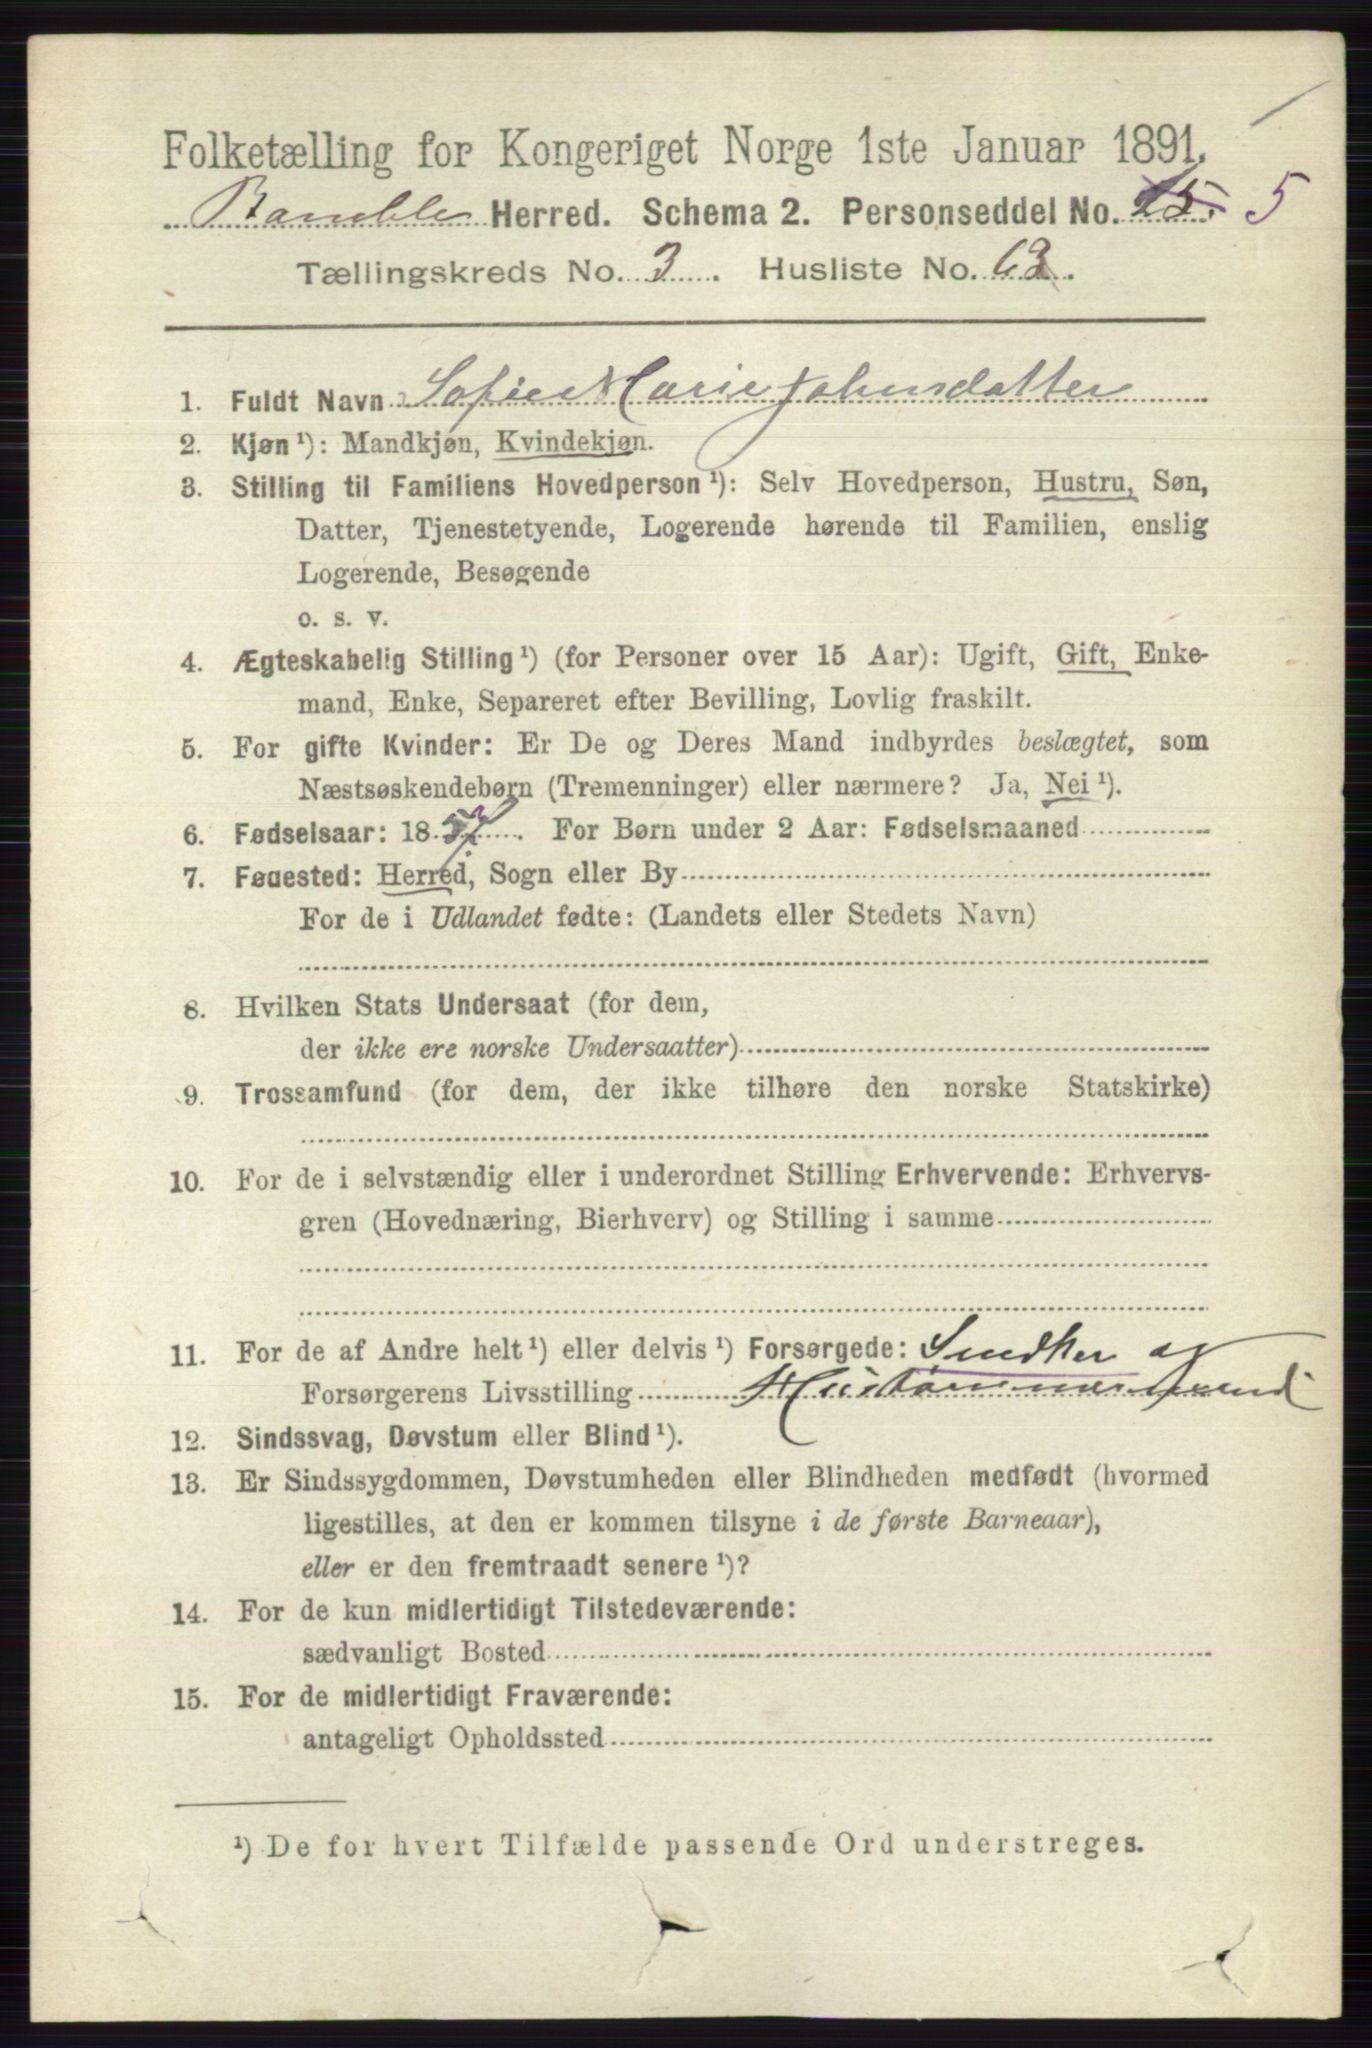 Folketælling for Kongeriget Norge 1ste Januar 1891.
Bamble Herred. Schema 2. Personseddel No. 15. 5
Tællingskreds No. 3. Husliste No. 63.
1. Fuldt Navn Sofie Marie Johnsdatter
2. Kjøn ¹): Mandkjøn, Kvindekjøn.
3. Stilling til Familiens Hovedperson ¹): Selv Hovedperson, Hustru, Søn,
Datter, Tjenestetyende, Logerende hørende til Familien, enslig
Logerende, Besøgende
o. s. v.
4. Ægteskabelig Stilling ¹) (for Personer over 15 Aar): Ugift, Gift, Enke-
mand, Enke, Separeret efter Bevilling, Lovlig fraskilt.
5. For gifte Kvinder: Er De og Deres Mand indbyrdes beslægtet, som
Næstsøskendebørn (Tremenninger) eller nærmere? Ja, Nei ¹).
6. Fødselsaar: 18 57. For Børn under 2 Aar: Fødselsmaaned
7. Fødested: Herred, Sogn eller By
For de i Udlandet fødte: (Landets eller Stedets Navn)
8. Hvilken Stats Undersaat (for dem,
der ikke ere norske Undersaatter)
9. Trossamfund (for dem, der ikke tilhøre den norske Statskirke)
10. For de i selvstændig eller i underordnet Stilling Erhvervende: Erhvervs-
gren (Hovednæring, Bierhverv) og Stilling i samme
11. For de af Andre helt ¹) eller delvis ¹) Forsørgede: Snedker og
Forsørgerens Livsstilling Hustømmermand
12. Sindssvag, Døvstum eller Blind ¹).
13. Er Sindssygdommen, Døvstumheden eller Blindheden medfødt (hvormed
ligestilles, at den er kommen tilsyne i de første Barneaar),
eller er den fremtraadt senere ¹)?
14. For de kun midlertidigt Tilstedeværende:
sædvanligt Bosted
15. For de midlertidigt Fraværende:
antageligt Opholdssted
¹) De for hvert Tilfælde passende Ord understreges.